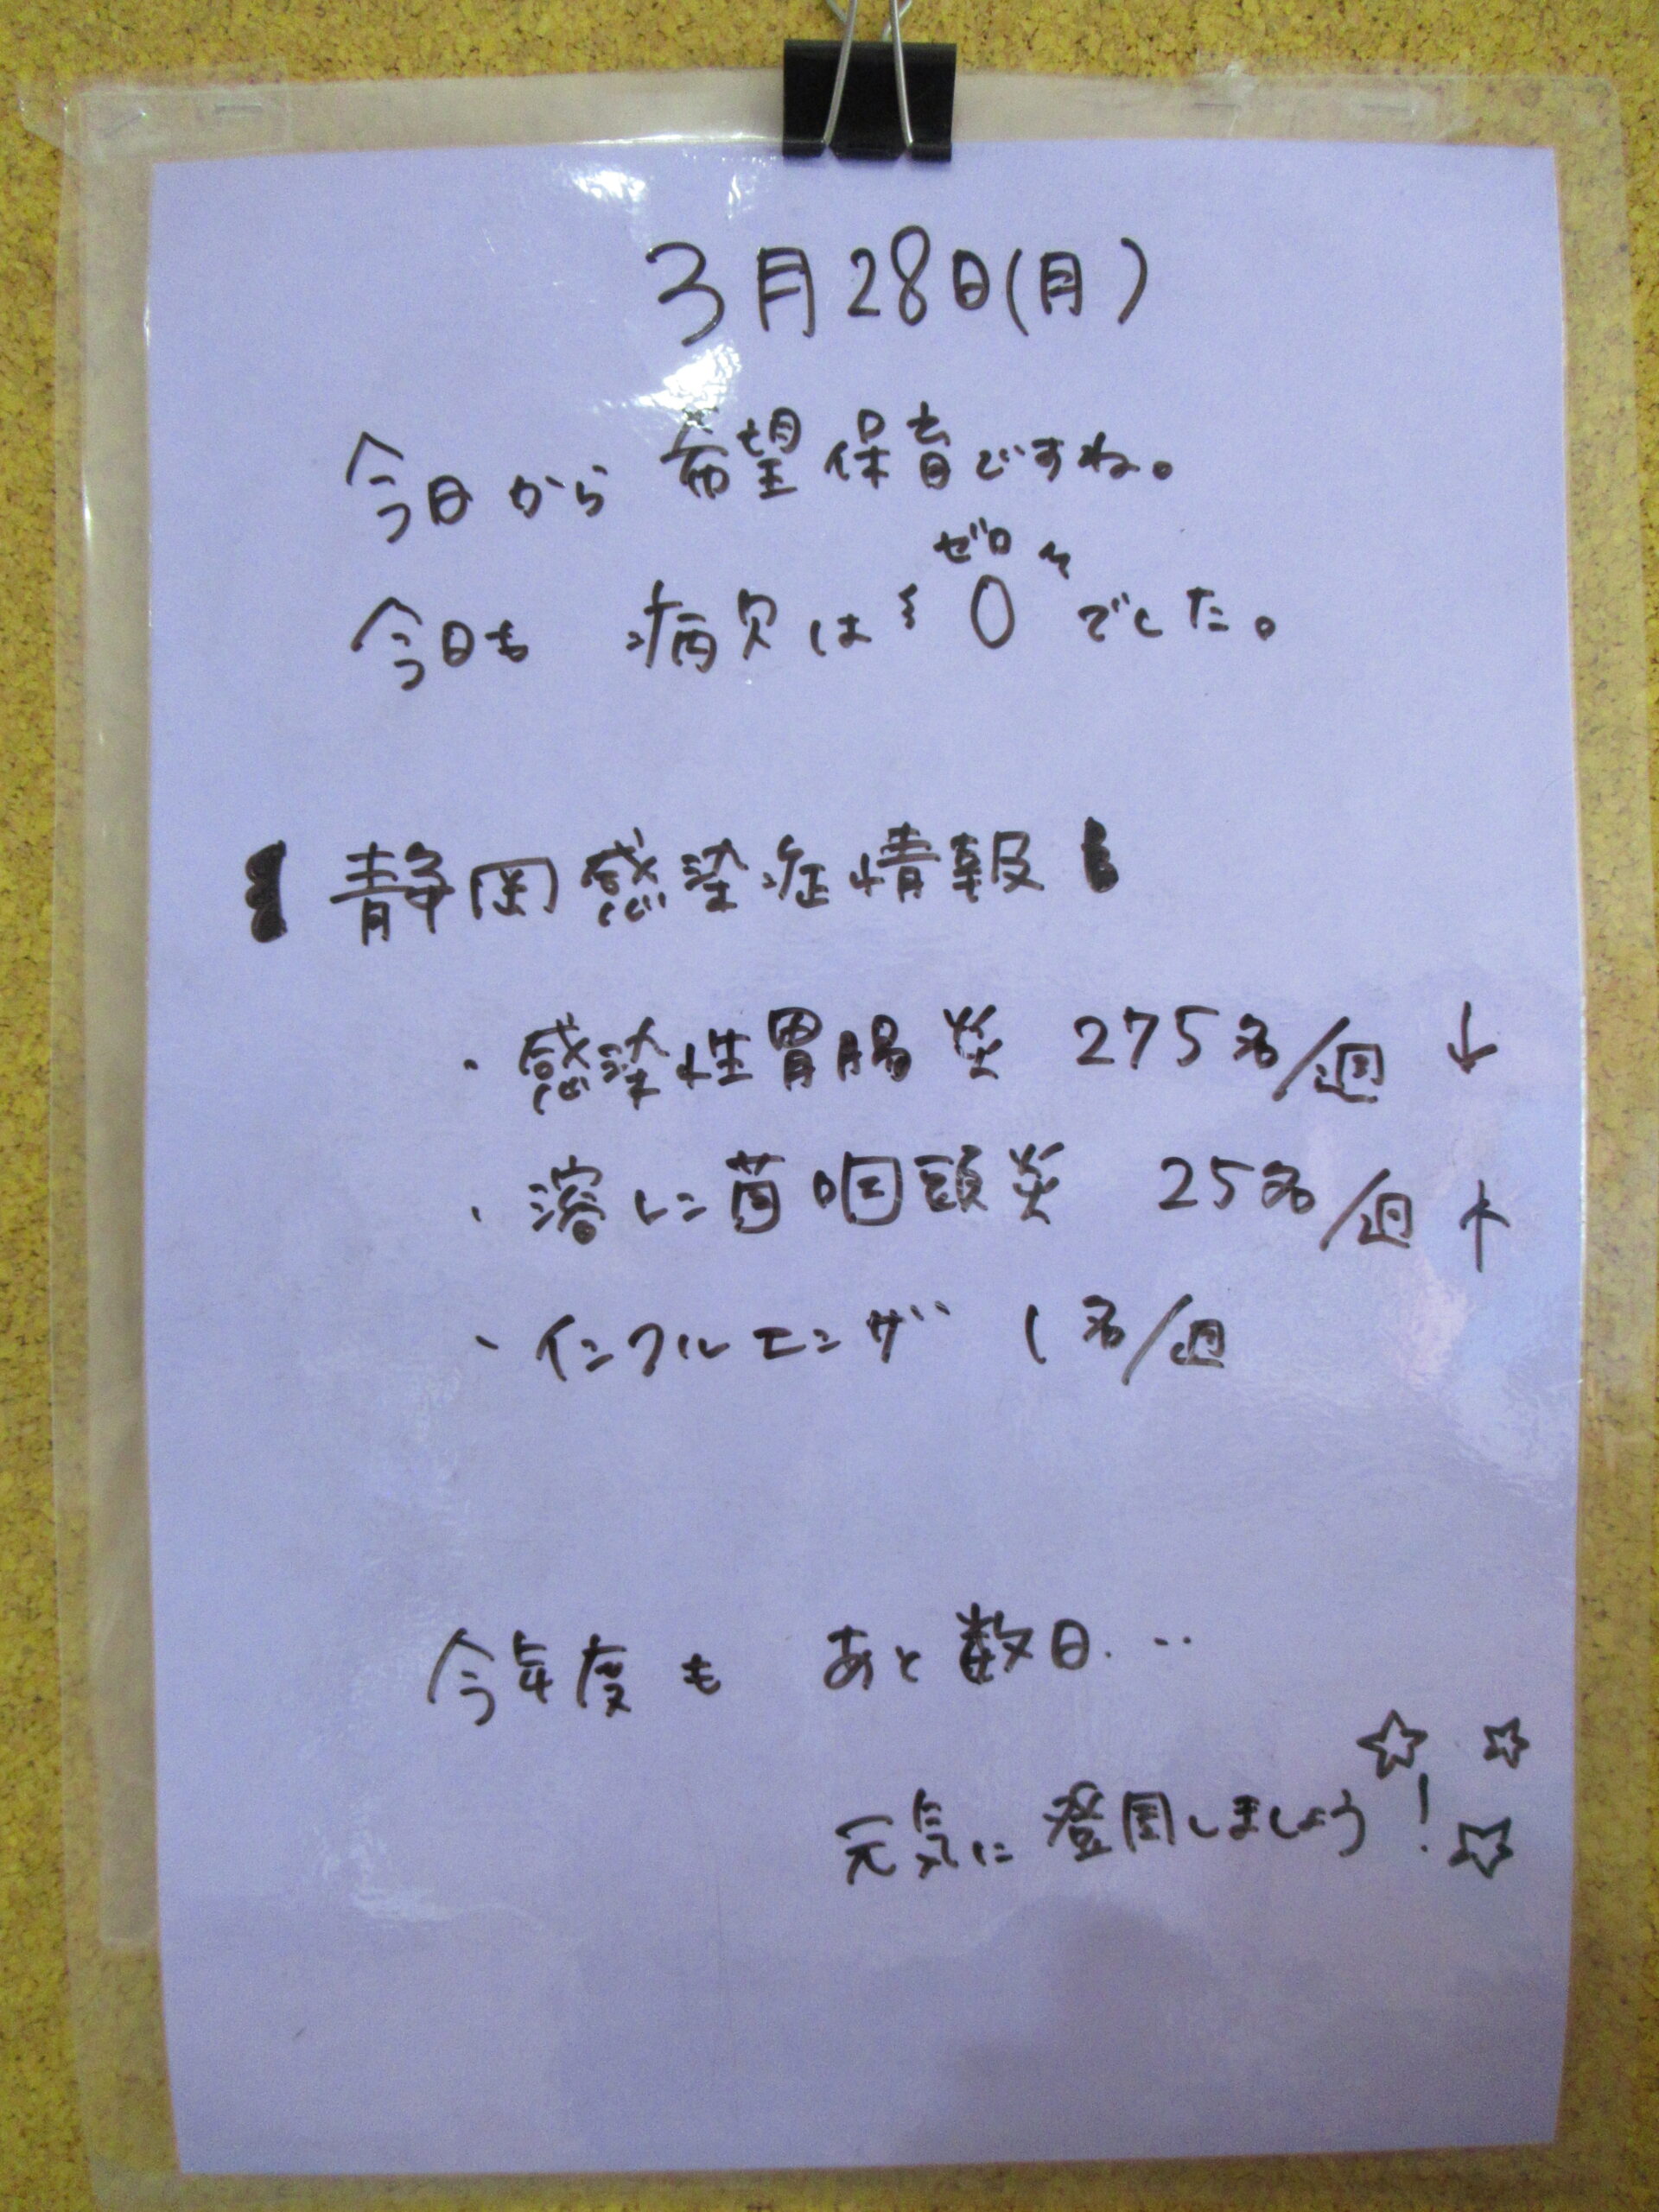 3月28日(月)
今日から 希望保育ですね。
ゼロ
今日も 病欠は〝0〟でした。
【静岡感染症情報】
・感染性胃腸炎 275名/週 ↓
・溶レン菌咽頭炎 25名/週 ↑
・インフルエンザ 1名/週
今年度も あと数日...
元気に登園しましょう!